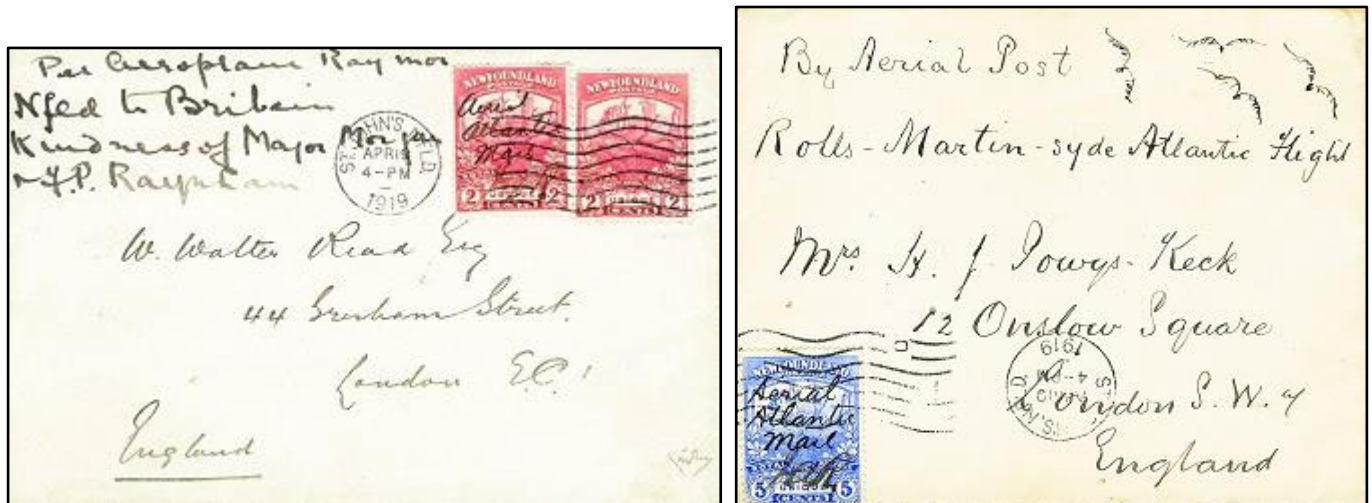 Per Aeroplane Raymor
Nfld to Britain
Kindness of Major Morgan
& F.P. Raynham
ST. JOHN'S NFLD.
APR 19
4-PM
1919
NEWFOUNDLAND
Aerial
Atlantic
Mail
2 CENTS 2
NEWFOUNDLAND
2 CENTS 2
W. Walter Read Esq
44 Gresham Street.
London E.C.1
England
By Aerial Post
Rolls-Martin-syde Atlantic Flight
Mrs H. J. Powys-Keck
12 Onslow Square
London S.W.7
England
1919
4-PM
NEWFOUNDLAND
Aerial
Atlantic
Mail
5 CENTS 5